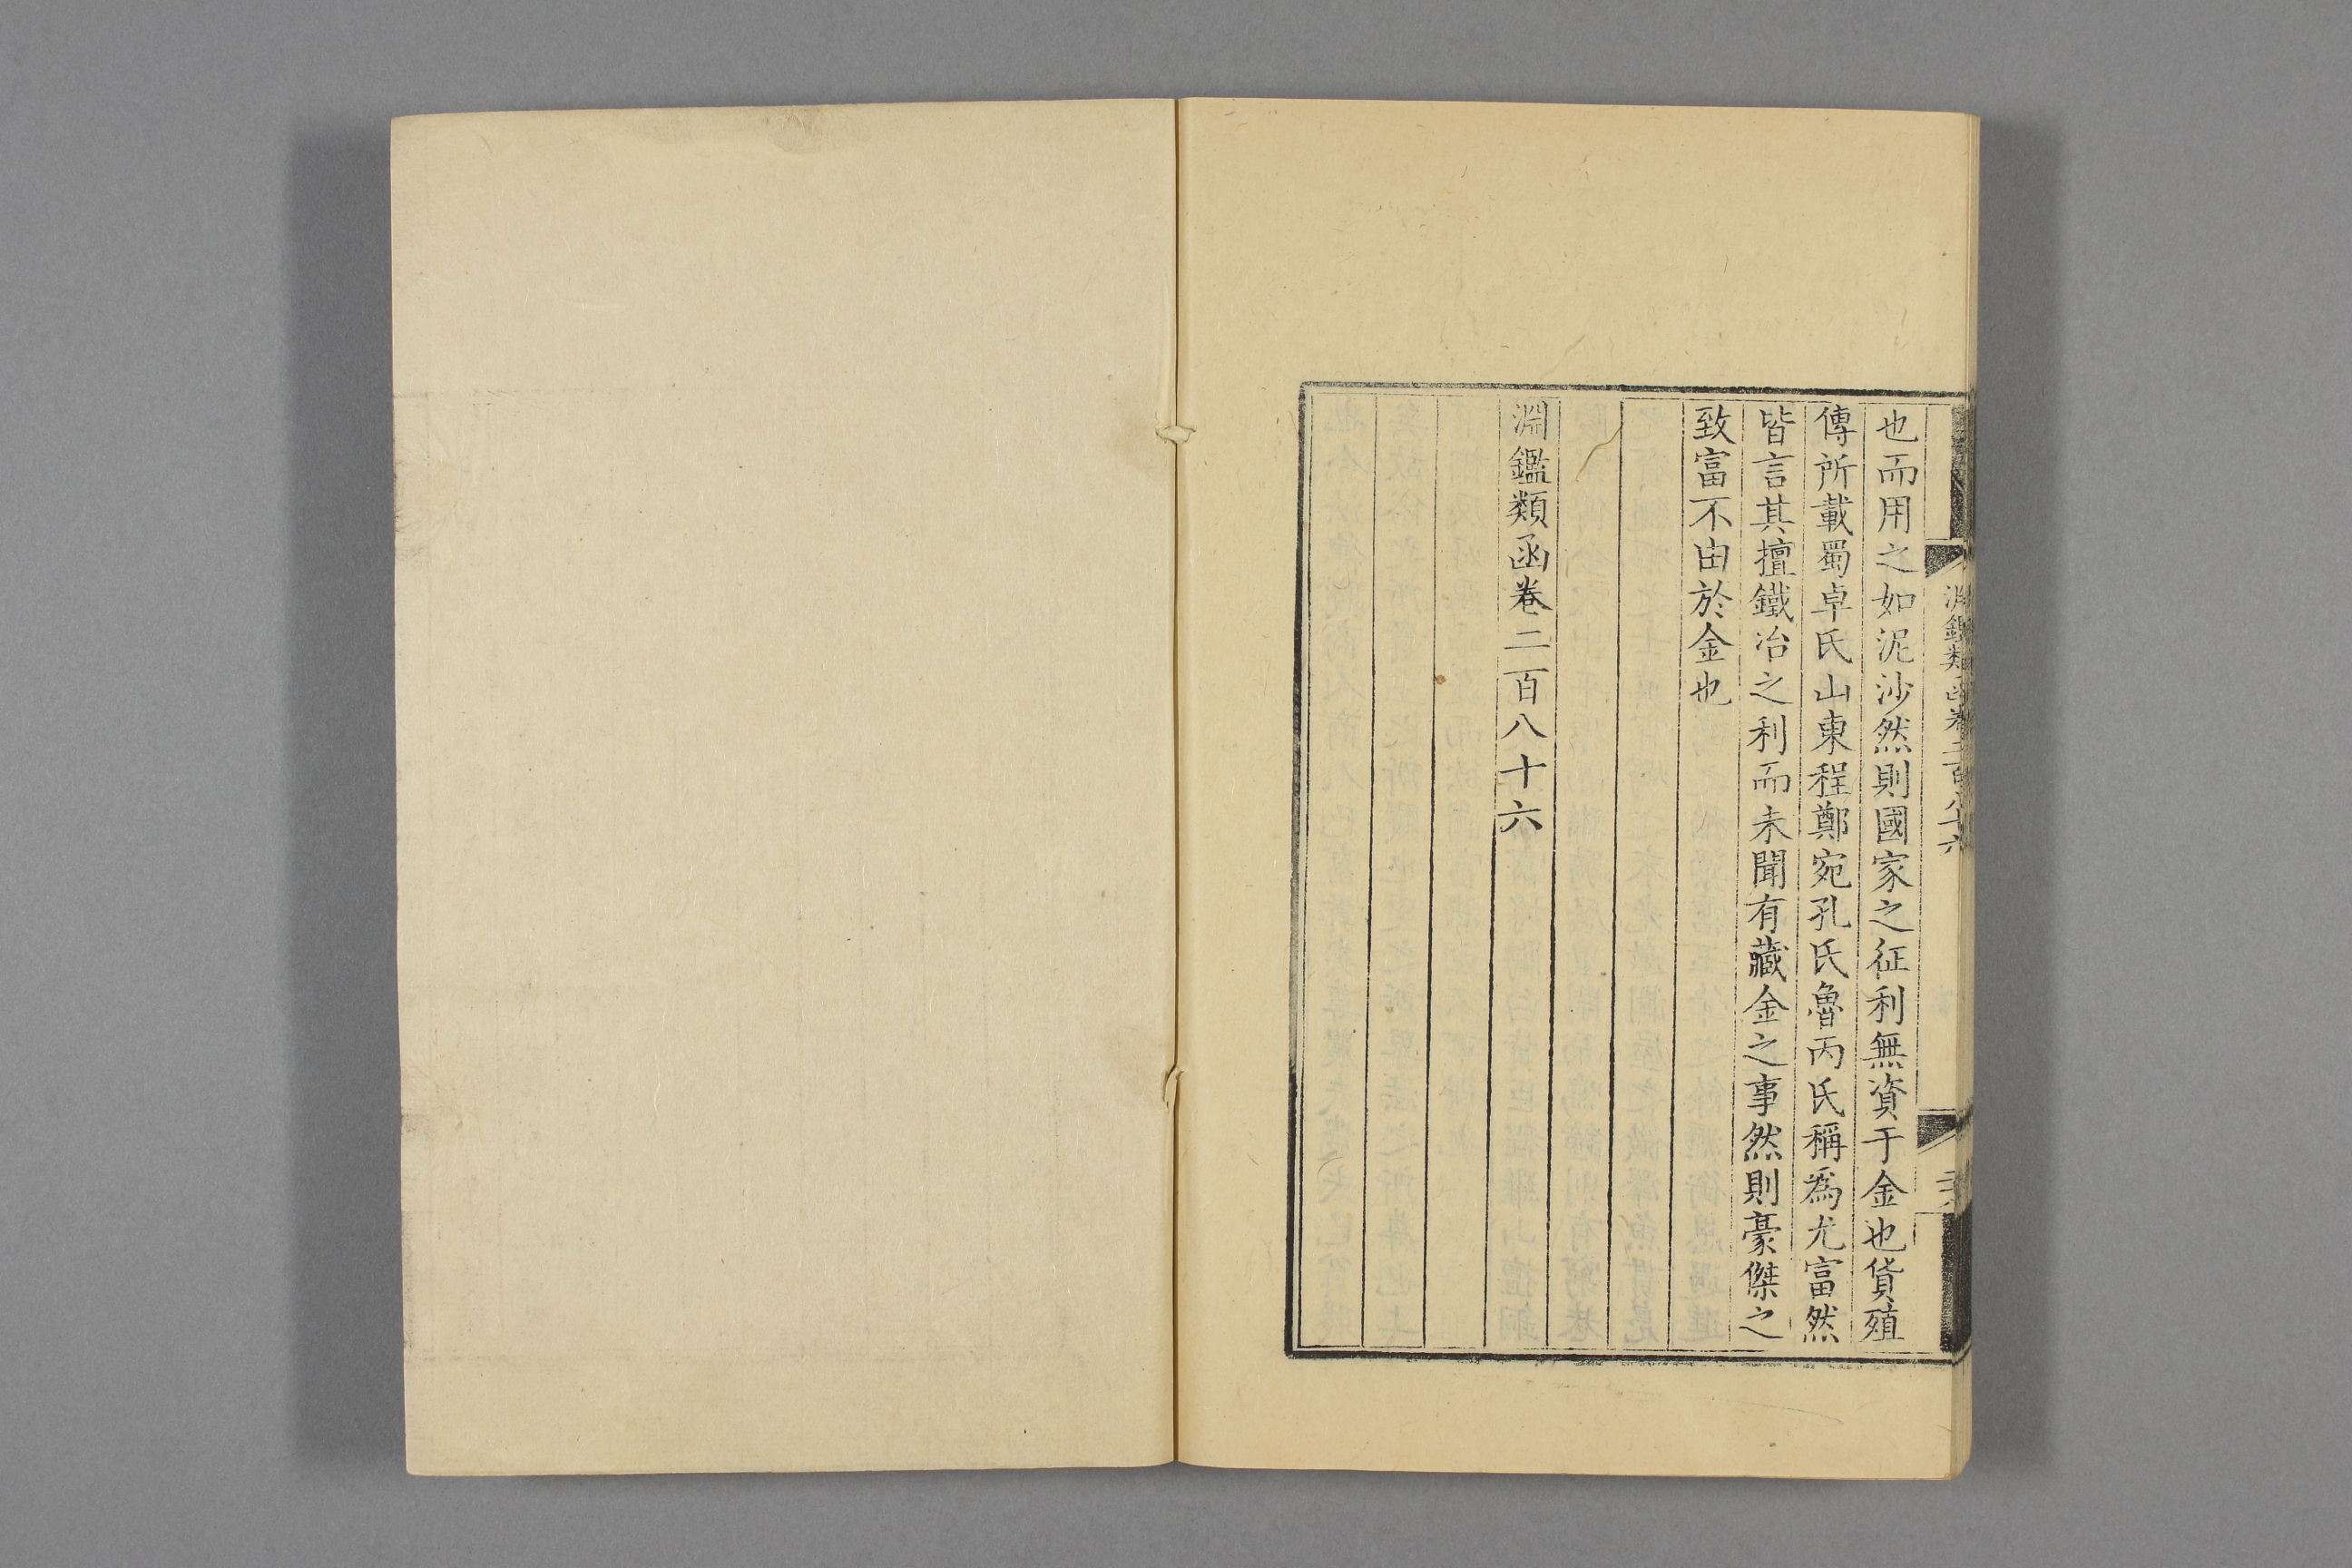 淵鑑類函卷二百八十六
也而用之如泥沙然則國家之征利無資于金也貨殖
傳所載蜀卓氏山東程鄭宛孔氏魯丙氏稱為尤富然
皆言其擅鐵冶之利而未聞有藏金之事然則豪傑之
致富不由於金也
淵鑑類函卷二百八十六